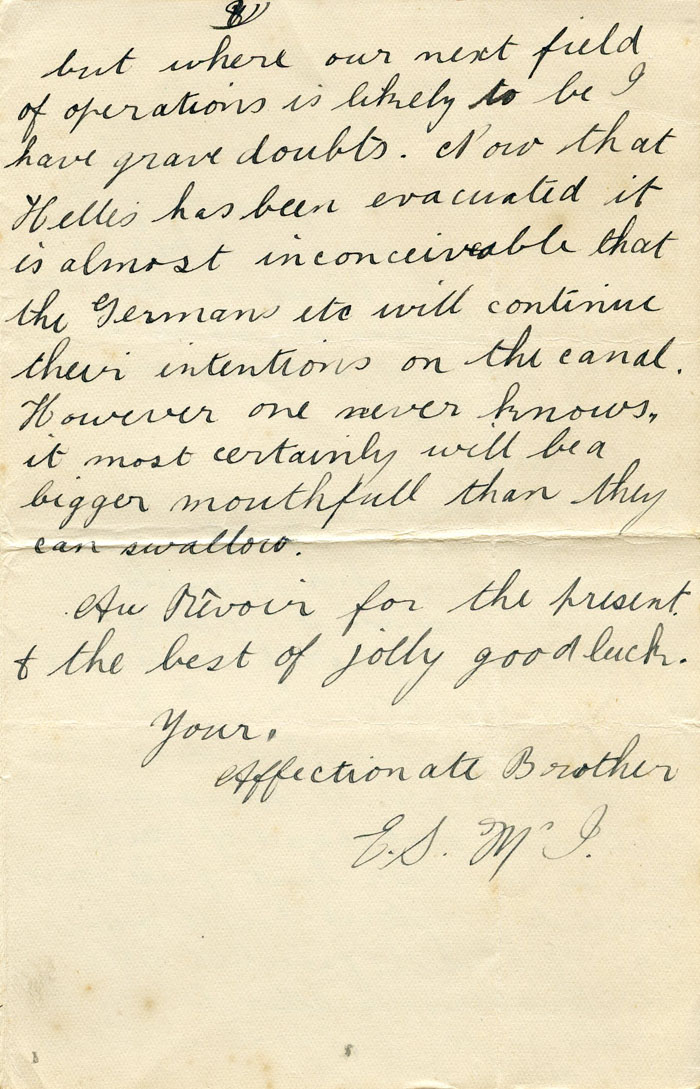 but where our next field
of operations is likely to be I
have grave doubts. Now that
Helles has been evacuated it
is almost inconceivable that
the Germans etc will continue
their intentions on the canal.
However one never knows,
it most certainly will be a
bigger mouthfull than they
can swallow.
Au Revoir for the present
& the best of jolly good luck.
Your,
Affectionate Brother
E.S. McI.